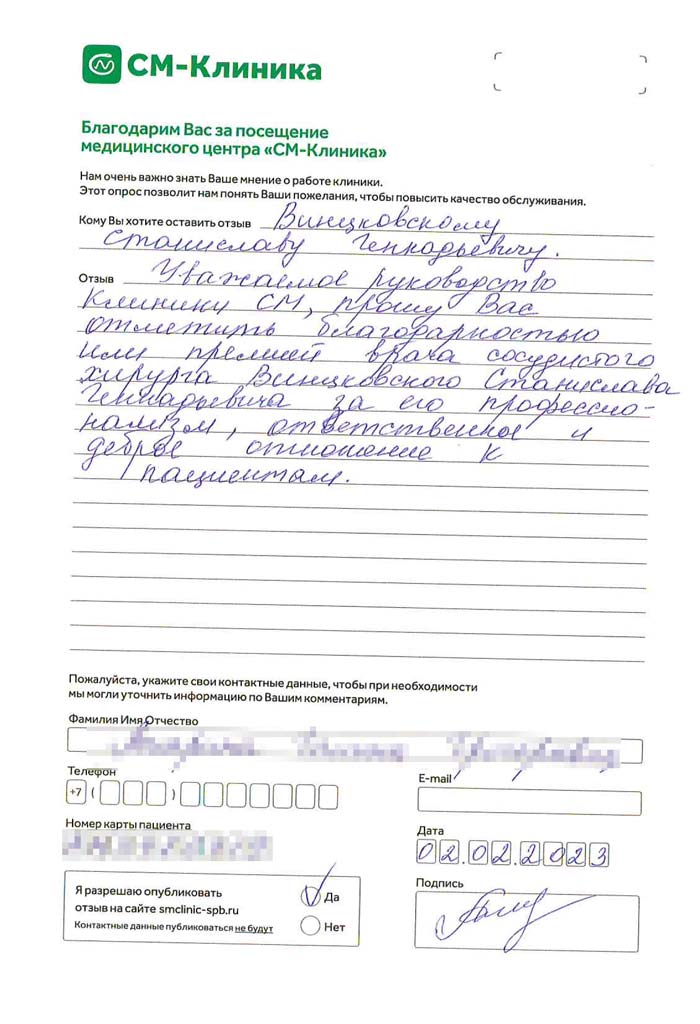 СМ-Клиника
Благодарим Вас за посещение
медицинского центра «СМ-Клиника»
Нам очень важно знать Ваше мнение о работе клиники.
Этот опрос позволит нам понять Ваши пожелания, чтобы повысить качество обслуживания.
Кому Вы хотите оставить отзыв Винцковскому
Станиславу Геннадьевичу.
Отзыв Уважаемое руководство
Клиники СМ, прошу Вас
отметить благодарностью
или премией врача сосудистого
хирурга Винцковского Станислава
Геннадьевича за его профессио-
нализм, ответственное и
доброе отношение к
пациентам.
Пожалуйста, укажите свои контактные данные, чтобы при необходимости
мы могли уточнить информацию по Вашим комментариям.
Фамилия Имя Отчество
Телефон
E-mail
+7 ( )
Номер карты пациента
Дата
02.02.2023
Я разрешаю опубликовать
отзыв на сайте smclinic-spb.ru
Контактные данные публиковаться не будут
Да
Нет
Подпись